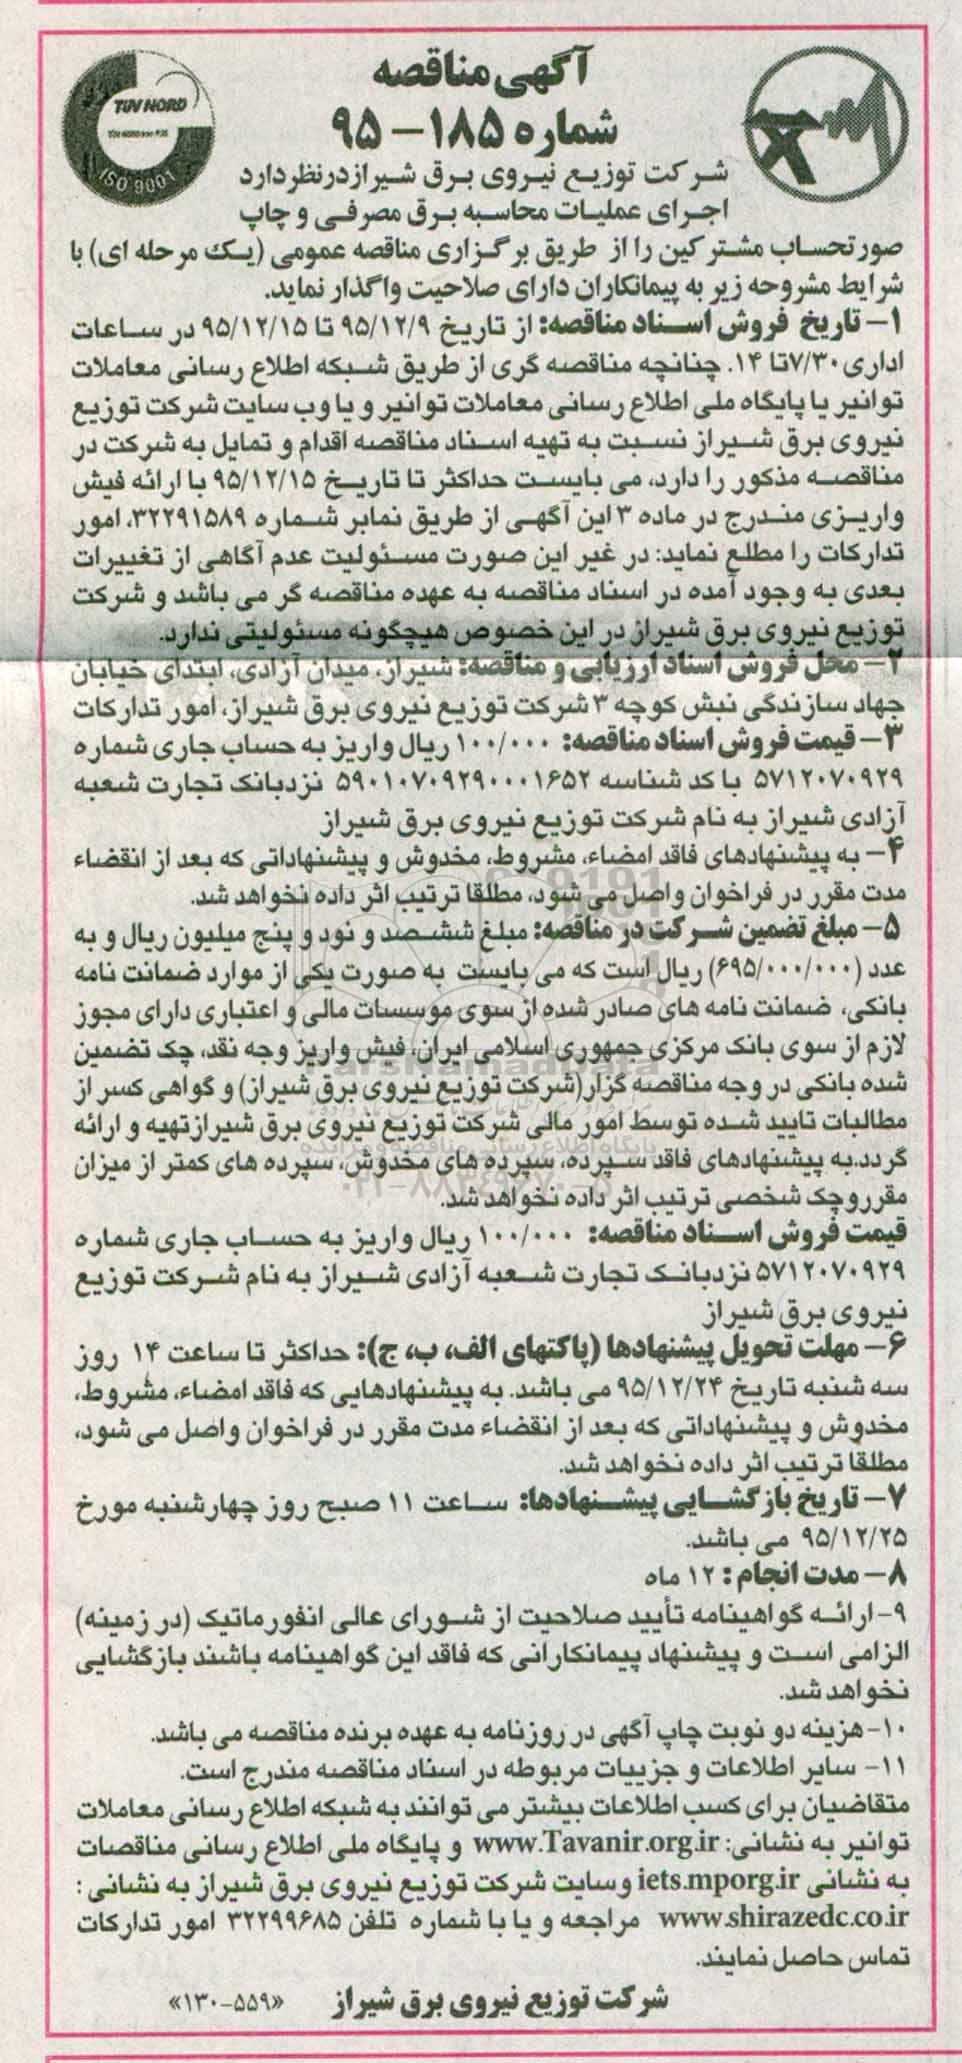 آگهی مناقصه
شماره ۱۸۵- ۹۵
TÜV NORD
ISO 9001
شرکت توزیع نیروی برق شیراز درنظر دارد
اجرای عملیات محاسبه برق مصرفی و چاپ
صورتحساب مشترکین را از طریق برگزاری مناقصه عمومی (یک مرحله ای) با
شرایط مشروحه زیر به پیمانکاران دارای صلاحیت واگذار نماید.
۱- تاریخ فروش اسناد مناقصه: از تاریخ ۹۵/۱۲/۹ تا ۹۵/۱۲/۱۵ در ساعات
اداری ۷/۳۰ تا ۱۴. چنانچه مناقصه گری از طریق شبکه اطلاع رسانی معاملات
توانیر یا پایگاه ملی اطلاع رسانی معاملات توانیر و یا وب سایت شرکت توزیع
نیروی برق شیراز نسبت به تهیه اسناد مناقصه اقدام و تمایل به شرکت در
مناقصه مذکور را دارد، می بایست حداکثر تا تاریخ ۹۵/۱۲/۱۵ با ارائه فیش
واریزی مندرج در ماده ۳ این آگهی از طریق نمابر شماره ۳۲۲۹۱۵۸۹، امور
تدارکات را مطلع نماید: در غیر این صورت مسئولیت عدم آگاهی از تغییرات
بعدی به وجود آمده در اسناد مناقصه به عهده مناقصه گر می باشد و شرکت
توزیع نیروی برق شیراز در این خصوص هیچگونه مسئولیتی ندارد.
۲- محل فروش اسناد ارزیابی و مناقصه: شیراز، میدان آزادی، ابتدای خیابان
جهاد سازندگی نبش کوچه ۳ شرکت توزیع نیروی برق شیراز، امور تدارکات
۳- قیمت فروش اسناد مناقصه: ۱۰۰/۰۰۰ ریال واریز به حساب جاری شماره
۵۷۱۲۰۷۰۹۲۹ با کد شناسه ۵۹۰۱۰۷۰۹۲۹۰۰۰۱۶۵۲ نزد بانک تجارت شعبه
آزادی شیراز به نام شرکت توزیع نیروی برق شیراز
۴- به پیشنهادهای فاقد امضاء، مشروط، مخدوش و پیشنهاداتی که بعد از انقضاء
مدت مقرر در فراخوان واصل می شود، مطلقا ترتیب اثر داده نخواهد شد.
۵- مبلغ تضمین شرکت در مناقصه: مبلغ ششصد و نود و پنج میلیون ریال و به
عدد (۶۹۵/۰۰۰/۰۰۰) ریال است که می بایست به صورت یکی از موارد ضمانت نامه
بانکی، ضمانت نامه های صادر شده از سوی موسسات مالی و اعتباری دارای مجوز
لازم از سوی بانک مرکزی جمهوری اسلامی ایران، فیش واریز وجه نقد، چک تضمین
شده بانکی در وجه مناقصه گزار (شرکت توزیع نیروی برق شیراز) و گواهی کسر از
مطالبات تایید شده توسط امور مالی شرکت توزیع نیروی برق شیراز تهیه و ارائه
گردد. به پیشنهادهای فاقد سپرده، سپرده های مخدوش، سپرده های کمتر از میزان
مقرر و چک شخصی ترتیب اثر داده نخواهد شد.
قیمت فروش اسناد مناقصه: ۱۰۰/۰۰۰ ریال واریز به حساب جاری شماره
۵۷۱۲۰۷۰۹۲۹ نزد بانک تجارت شعبه آزادی شیراز به نام شرکت توزیع
نیروی برق شیراز
۶- مهلت تحویل پیشنهادها (پاکتهای الف، ب، ج): حداکثر تا ساعت ۱۴ روز
سه شنبه تاریخ ۹۵/۱۲/۲۴ می باشد. به پیشنهادهایی که فاقد امضاء، مشروط،
مخدوش و پیشنهاداتی که بعد از انقضاء مدت مقرر در فراخوان واصل می شود،
مطلقا ترتیب اثر داده نخواهد شد.
۷- تاریخ بازگشایی پیشنهادها: ساعت ۱۱ صبح روز چهارشنبه مورخ
۹۵/۱۲/۲۵ می باشد.
۸- مدت انجام : ۱۲ ماه
۹- ارائه گواهینامه تأیید صلاحیت از شورای عالی انفورماتیک (در زمینه)
الزامی است و پیشنهاد پیمانکارانی که فاقد این گواهینامه باشند بازگشایی
نخواهد شد.
۱۰- هزینه دو نوبت چاپ آگهی در روزنامه به عهده برنده مناقصه می باشد.
۱۱- سایر اطلاعات و جزییات مربوطه در اسناد مناقصه مندرج است.
متقاضیان برای کسب اطلاعات بیشتر می توانند به شبکه اطلاع رسانی معاملات
توانیر به نشانی: www.Tavanir.org.ir و پایگاه ملی اطلاع رسانی مناقصات
به نشانی iets.mporg.ir وسایت شرکت توزیع نیروی برق شیراز به نشانی :
www.shirazedc.co.ir مراجعه و یا با شماره تلفن ۳۲۲۹۹۶۸۵ امور تدارکات
تماس حاصل نمایند.
شرکت توزیع نیروی برق شیراز «۵۵۹-۱۳۰»
ParsNamadData
پایگاه اطلاع رسانی مناقصه و مزایده
۰۲۱-۸۸۳۴۹۶۷۰-۵